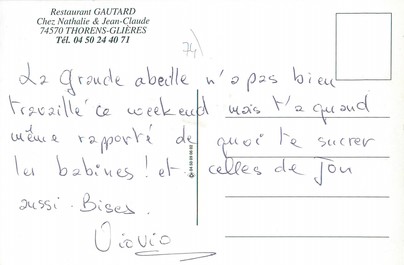 Restaurant GAUTARD
Chez Nathalie & Jean-Claude
74570 THORENS-GLIÈRES
Tél. 04 50 24 40 71
74)
La grande abeille n'a pas bien
travaillé ce weekend mais t'a quand
même rapporté de quoi te sucrer
les babines ! et celles de Jon
aussi. Bises.